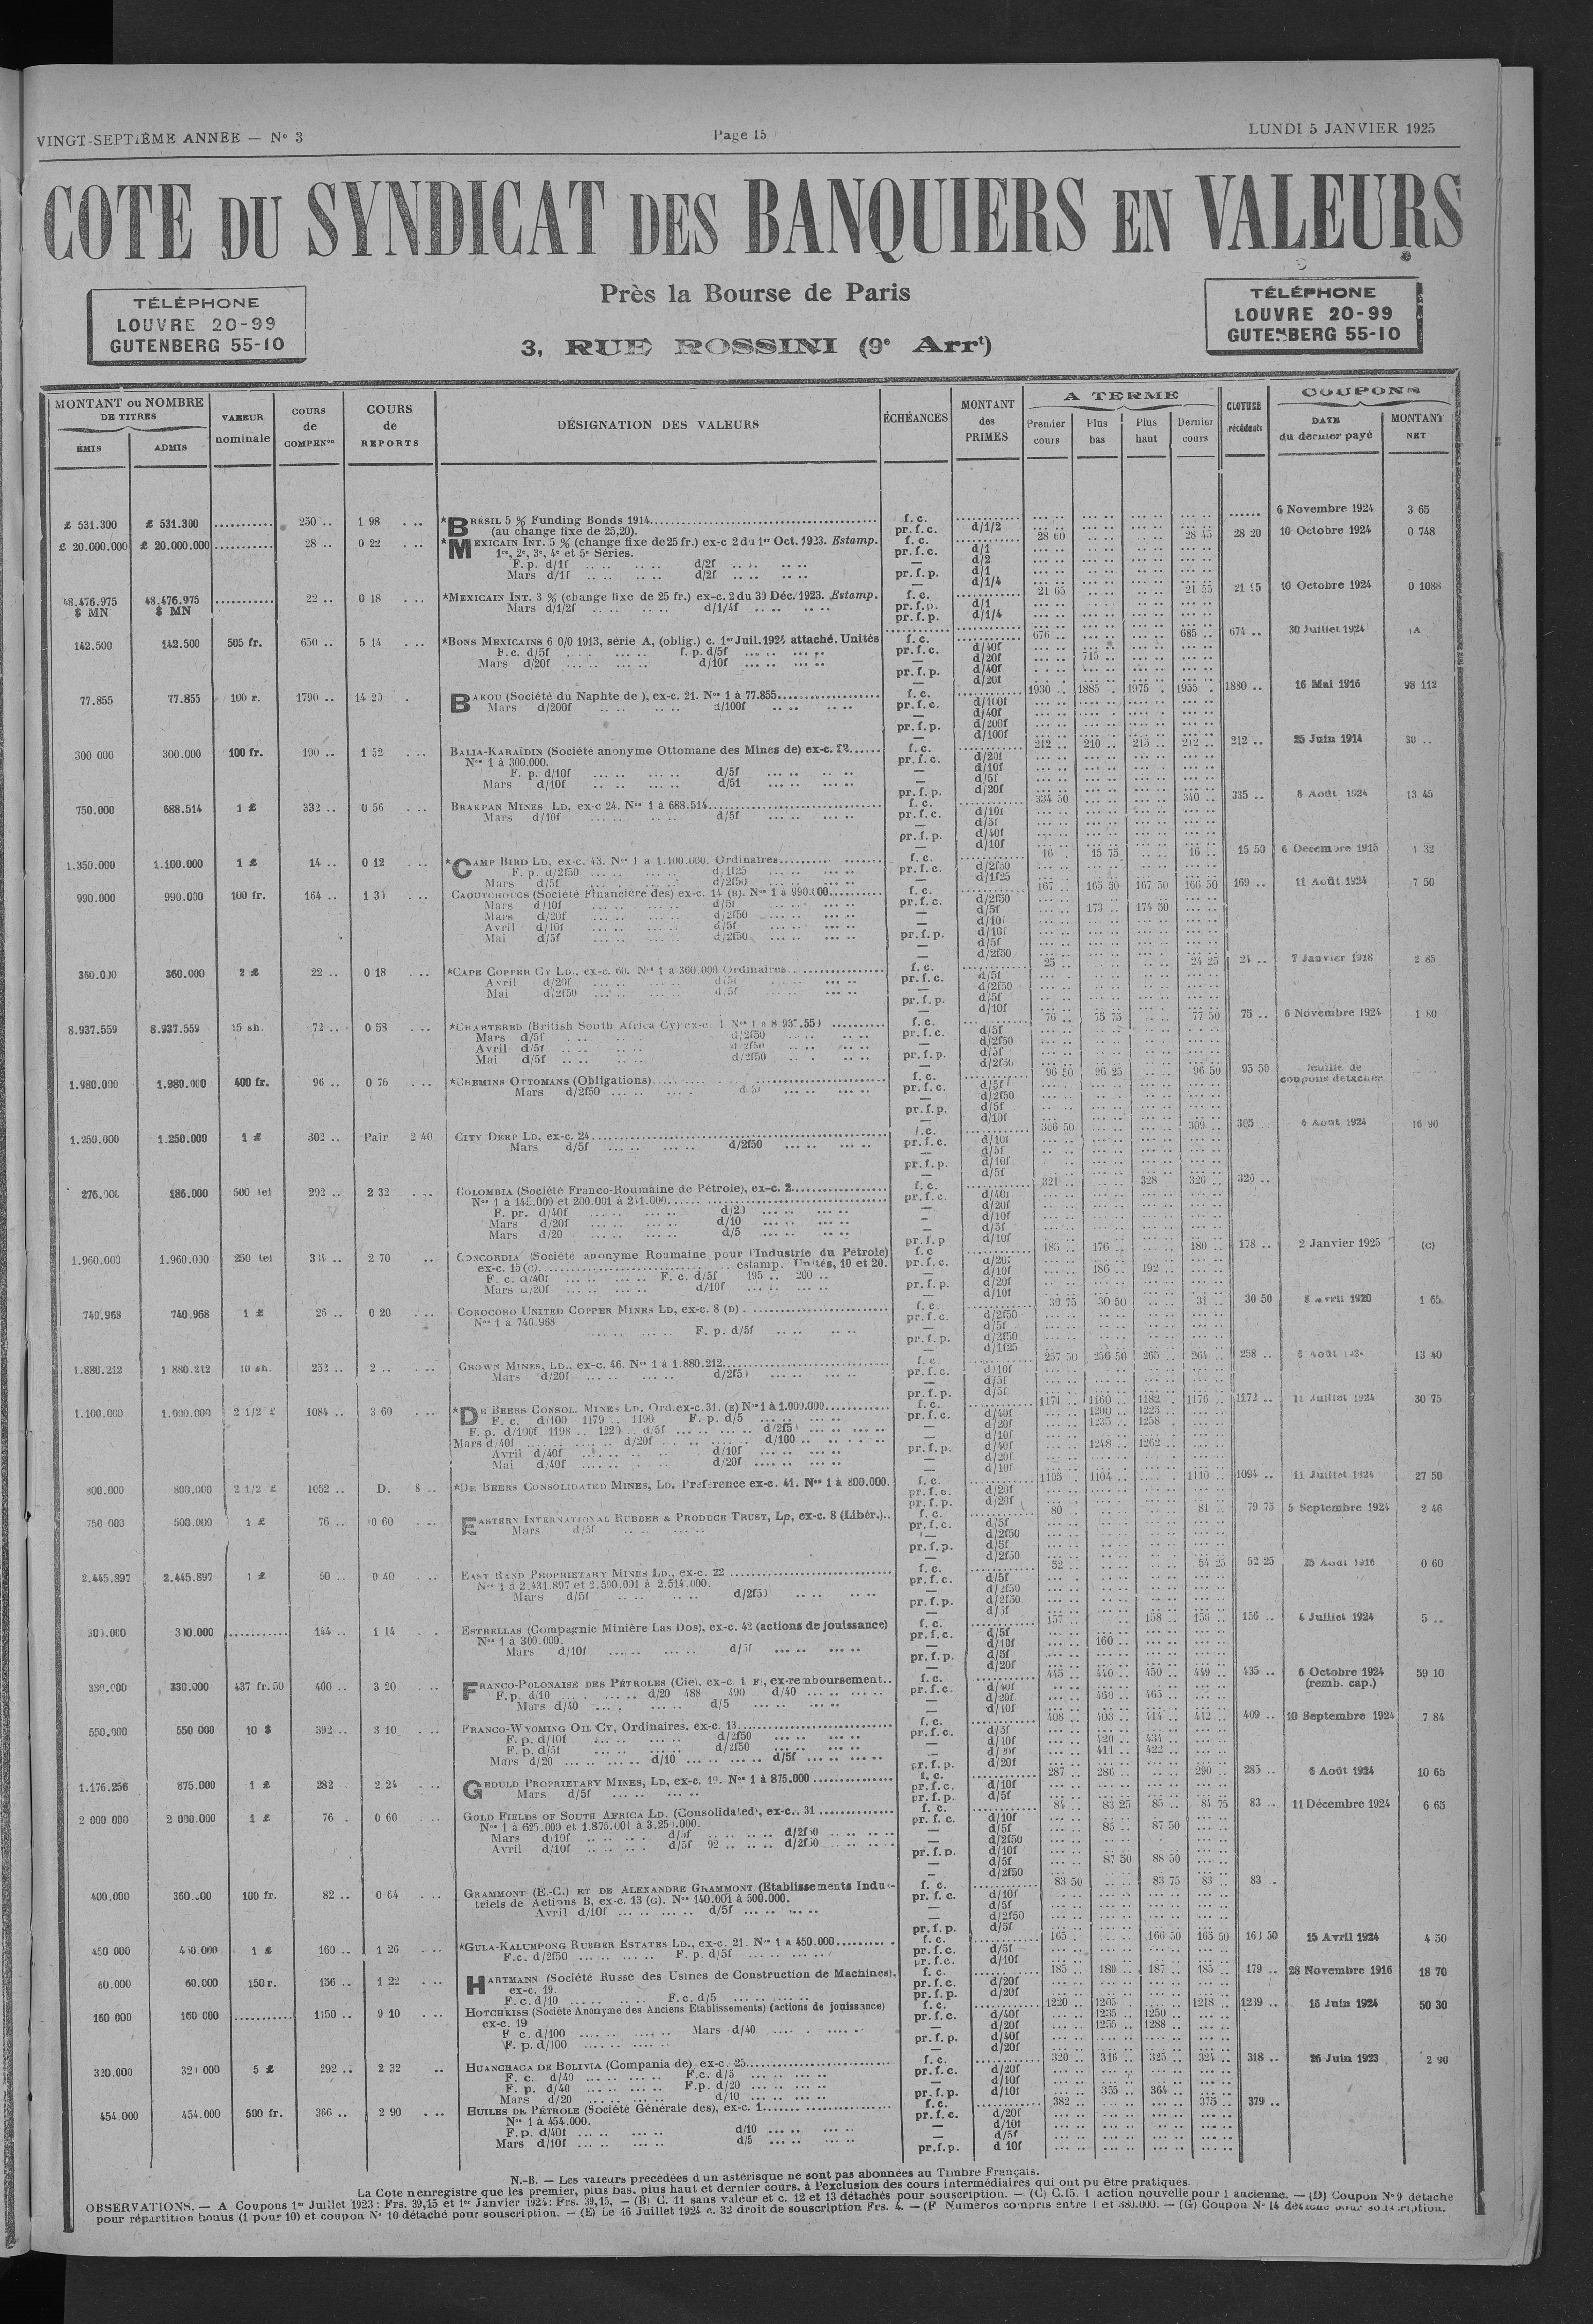 VINGT-SEPTIÈME ANNEE — No 3
Page 15
LUNDI 5 JANVIER 1925
COTE DU SYNDICAT DES BANQUIERS EN VALEURS
TÉLÉPHONE
LOUVRE 20-99
GUTENBERG 55-10
Près la Bourse de Paris
3, RUE ROSSINI (9e Arrt)
TÉLÉPHONE
LOUVRE 20-99
GUTENBERG 55-10
MONTANT ou NOMBRE DE TITRES
ÉMIS
ADMIS
VALEUR nominale
COURS de COMPENon
COURS de REPORTS
DÉSIGNATION DES VALEURS
ÉCHÉANCES
MONTANT des PRIMES
A TERME
Premier cours
Plus bas
Plus haut
Dernier cours
CLOTURE précédente
COUPONS
DATE du dernier payé
MONTANT NET
£ 531.300 £ 531.300 250 .. 1 98 *BRESIL 5 % Funding Bonds 1914 f. c. 6 Novembre 1924 3 65
(au change fixe de 25,20). pr. f. c. d/1/2
£ 20.000.000 £ 20.000.000 28 .. 0 22 *MEXICAIN INT. 5 % (change fixe de 25 fr.) ex-c 2 du 1er Oct. 1923. Estamp. f. c. 28 60 28 45 28 20 10 Octobre 1924 0 748
1re, 2e, 3e, 4e et 5e Séries. pr. f. c. d/1
F. p. d/1f d/2f — d/2
Mars d/1f d/2f pr. f. p. d/1
— d/1/4
48.476.975 $ MN 48.476.975 $ MN 22 .. 0 18 *MEXICAIN INT. 3 % (change fixe de 25 fr.) ex-c. 2 du 30 Déc. 1923. Estamp. f. c. 21 65 21 55 21 15 10 Octobre 1924 0 1088
Mars d/1/2f d/1/4f pr. f. p. d/1
pr. f. p. d/1/4
142.500 142.500 505 fr. 650 .. 5 14 *BONS MEXICAINS 6 0/0 1913, série A, (oblig.) c. 1er Juil. 1924 attaché. Unités f. c. 676 .. 685 .. 674 .. 30 Juillet 1924 (A
F.c. d/5f f. p. d/5f pr. f. c. d/40f
Mars d/20f d/10f — d/20f 715 ..
pr. f. p. d/40f
— d/20f
77.855 77.855 100 r. 1790 .. 14 20 BAKOU (Société du Naphte de ), ex-c. 21. Nos 1 à 77.855 f. c. 1930 .. 1885 .. 1975 .. 1955 .. 1880 .. 16 Mai 1916 98 112
Mars d/200f d/100f pr. f. c. d/100f
— d/40f
pr. f. p. d/200f
— d/100f
300 000 300.000 100 fr. 190 .. 1 52 BALIA-KARAÏDIN (Société anonyme Ottomane des Mines de) ex-c. f. c. 212 .. 210 .. 215 .. 212 .. 212 .. 25 Juin 1914 30 ..
Nos 1 à 300.000. pr. f. c. d/20f
F. p. d/10f d/5f — d/10f
Mars d/10f d/5f — d/5f
pr. f. p. d/20f
750.000 688.514 1 £ 332 .. 0 56 BRAKPAN MINES LD, ex-c 24. Nos 1 à 688.514 f. c. 334 50 340 .. 335 .. 6 Août 1924 13 45
Mars d/10f d/5f pr. f. c. d/10f
— d/5f
pr. f. p. d/40f
— d/10f
1.350.000 1.100.000 1 £ 14 .. 0 12 *CAMP BIRD LD, ex-c. 43. Nos 1 à 1.100.000. Ordinaires f. c. 16 . 15 75 16 .. 15 50 6 Decembre 1915 1 32
F. p. d/2f50 d/1f25 pr. f. c. d/2f50
Mars d/5f d/2f50 — d/1f25
990.000 990.000 100 fr. 164 .. CAOUTCHOUCS (Société Financière des) ex-c. 14 (B). Nos 1 à 990.000 f. c. 167 .. 165 50 167 50 166 50 169 .. 11 Août 1924 7 50
Mars d/10f d/5f pr. f. c. d/2f50
Mars d/20f d/2f50 — d/5f 173 .. 174 50
Avril d/10f d/5f — d/10f
Mai d/5f d/2f50 pr. f. p. d/10f
— d/5f
— d/2f50
360.000 360.000 2 £ 22 .. 0 18 *CAPE COPPER CY LD., ex-c. 60. Nos 1 à 360.000 Ordinaires f. c. 25 .. 24 25 24 .. 7 Janvier 1918 2 85
Avril d/20f d/5f pr. f. c. d/5f
Mai d/2f50 d/5f — d/2f50
pr. f. p. d/5f
— d/10f
8.937.559 8.937.559 15 sh. 72 .. 0 58 *CHARTERED (British South Africa Cy) ex-c. 1 f. c. 76 .. 75 75 77 50 75 .. 6 Novembre 1924 1 80
Mars d/5f d/2f50 pr. f. c. d/5f
Avril d/5f d/2f50 — d/2f50
Mai d/5f d/2f50 pr. f. p. d/5f
— d/2f50
1.980.000 1.980.000 400 fr. 96 .. 0 76 *CHEMINS OTTOMANS (Obligations) f. c. 96 50 96 25 96 50 95 50 feuille de coupons détachée
Mars d/2f50 d/5f pr. f. c. d/5f
— d/2f50
pr. f. p. d/5f
— d/10f
1.250.000 1.250.000 1 £ 302 .. Pair 2 40 CITY DEEP LD, ex-c. 24 f. c. 306 50 309 .. 305 6 Août 1924 16 90
Mars d/5f d/2f50 pr. f. c. d/10f
— d/5f
pr. f. p. d/10f
— d/5f
276.000 186.000 500 lei 292 .. 2 32 COLOMBIA (Société Franco-Roumaine de Pétrole), ex-c. 2 f. c. 321 .. 328 326 .. 320 ..
Nos 1 à 145.000 et 200.001 à 241.000 pr. f. c. d/40f
F. pr. d/40f d/20 — d/20f
Mars d/20f d/10 — d/10f
Mars d/20 d/5 — d/5f
pr. f. p d/10f
1.960.000 1.960.000 250 lei 2 70 CONCORDIA (Société anonyme Roumaine pour l'Industrie du Pétrole) f. c 185 .. 176 .. 180 .. 178 .. 2 Janvier 1925 (C)
ex-c. 15 (C) estamp. Unités, 10 et 20. pr. f. c. d/20f
F. c. d/40f F. c. d/5f 195 .. 200 .. — d/10f 186 .. 192 ..
Mars d/20f d/10f pr. f. p. d/20f
— d/10f
740.968 740.968 1 £ 26 .. 0 20 COROCORO UNITED COPPER MINES LD, ex-c. 8 (D) f. c. 30 75 30 50 31 .. 30 50 8 avril 1920 1 65
Nos 1 à 740.968 pr. f. c. d/2f50
F. p. d/5f — d/5f
pr. f. p. d/2f50
— d/1f25
1.880.212 1 880.212 10 sh. 252 .. 2 .. CROWN MINES, LD., ex-c. 46. Nos 1 à 1.880.212 f. c. 257 50 256 50 265 .. 264 .. 258 .. 6 Août 1924 13 40
Mars d/20f d/2f50 pr. f. c. d/10f
— d/5f
pr. f. p. d/5f
1.100.000 1.000.000 2 1/2 £ 1084 .. 3 60 *DE BEERS CONSOL. MINES LD. Ord. ex-c. 31. (E) Nos 1 à 1.000.000 f. c. 1171 .. 1160 .. 1182 . 1176 .. 1172 .. 11 Juillet 1924 30 75
F. c. d/100 1179 .. 1190 F. p. d/5 pr. f. c. d/40f 1200 .. 1223 ..
F. p. d/100f 1198 .. 1220 .. d/5f d/2f50 — d/20f 1235 .. 1258 ..
Mars d/40f d/20f d/100 — d/10f
Avril d/40f d/10f pr. f. p. d/40f 1248 .. 1262 ..
Mai d/40f d/20f — d/20f
— d/10f
800.000 800.000 2 1/2 £ 1052 .. D. 8 .. *DE BEERS CONSOLIDATED MINES, LD. Préférence ex-c. 41. Nos 1 à 800.000. f. c. 1105 . 1104 .. 1110 .. 1094 .. 11 Juillet 1924 27 50
pr. f. c. d/20f
pr. f. p. d/20f
750 000 500.000 1 £ 76 .. 0 60 EASTERN INTERNATIONAL RUBBER & PRODUCE TRUST, LD, ex-c. 8 (Libér.) f. c. 80 .. 81 .. 79 75 5 Septembre 1924 2 46
Mars d/5f pr. f. c. d/5f
— d/2f50
pr. f. p. d/5f
— d/2f50
2.445.897 2.445.897 1 £ 50 .. 0 40 EAST RAND PROPRIETARY MINES LD., ex-c. 22 f. c. 52 .. 54 25 52 25 25 Août 1916 0 60
Nos 1 à 2.431.897 et 2.500.001 à 2.514.000. pr. f. c. d/5f
Mars d/5f d/2f50 — d/2f50
pr. f. p. d/2f50
— d/5f
300.000 300.000 144 .. 1 14 ESTRELLAS (Compagnie Minière Las Dos), ex-c. 42 (actions de jouissance) f. c. 157 .. 158 .. 156 .. 156 .. 4 Juillet 1924 5 ..
Nos 1 à 300.000. pr. f. c. d/5f
Mars d/10f d/5f — d/10f 160 ..
pr. f. p. d/5f
— d/20f
330.000 330.000 437 fr. 50 400 .. 3 20 FRANCO-POLONAISE DES PÉTROLES (Cie), ex-c. 1 F), ex-remboursement f. c. 445 .. 440 .. 450 .. 449 .. 435 .. 6 Octobre 1924 (remb. cap.) 59 10
F. p. d/10 d/20 488 490 d/40 pr. f. c. d/40f
Mars d/40 d/5 — d/20f 460 .. 465 ..
— d/10f
550.000 550 000 10 $ 392 .. 3 10 FRANCO-WYOMING OIL CY, Ordinaires, ex-c. 13 f. c. 408 .. 403 .. 414 .. 412 .. 409 .. 10 Septembre 1924 7 84
F. p. d/10f d/2f50 pr. f. c. d/5f
F. p. d/5f d/2f50 — d/10f 420 .. 434 ..
Mars d/20 d/10 d/5f — d/20f 411 .. 422 ..
pr. f. p. d/20f
1.176.256 875.000 1 £ 282 2 24 GEDULD PROPRIETARY MINES, LD, ex-c. 19. Nos 1 à 875.000 f. c. 287 .. 286 .. 290 .. 285 .. 6 Août 1924 10 65
Mars d/5f pr. f. c. d/10f
pr. f. p. d/5f
2 000 000 2 000.000 1 £ 76 . 0 60 GOLD FIELDS OF SOUTH AFRICA LD. (Consolidated), ex-c. 31 f. c. 84 .. 83 25 85 .. 84 75 83 .. 11 Décembre 1924 6 65
Nos 1 à 625.000 et 1.875.001 à 3.250.000. pr. f. c. d/10f
Mars d/10f d/5f d/2f50 — d/5f 85 .. 87 50
Avril d/10f d/5f 92 .. d/2f50 — d/2f50
pr. f. p. d/10f
— d/5f 87 50 88 50
— d/2f50
400.000 360.000 100 fr. 82 .. 0 64 GRAMMONT (E.-C.) ET DE ALEXANDRE GRAMMONT (Etablissements Indus- f. c. 83 50 83 75 83 .. 83 ..
triels de Actions B, ex-c. 13 (G). Nos 140.001 à 500.000. pr. f. c. d/10f
Avril d/10f d/5f — d/5f
— d/2f50
pr. f. p. d/5f
450 000 450.000 1 £ 160 .. 1 26 *GULA-KALUMPONG RUBBER ESTATES LD., ex-c. 21. Nos 1 à 450.000 f. c. 165 .. 166 50 165 50 15 Avril 1924 4 50
F.c. d/2f50 F. p. d/5f pr. f. c. d/5f
pr. f. c. d/10f
60.000 60.000 150 r. 156 .. 1 22 HARTMANN (Société Russe des Usines de Construction de Machines), f. c. 185 .. 180 .. 187 .. 185 .. 179 .. 28 Novembre 1916 18 70
ex-c. 19. pr. f. c. d/20f
F. c. d/10 F.c. d/5 pr. f. p. d/20f
160 000 160 000 1150 .. 9 10 HOTCHKISS (Société Anonyme des Anciens Etablissements) (actions de jouissance) f. c. 1220 .. 1205 .. 1218 .. 1219 .. 16 Juin 1924 50 30
ex-c. 19 pr. f. c. d/40f 1235 .. 1250 ..
F c. d/100 Mars d/40 — d/20f 1255 .. 1288 ..
F. p. d/100 pr. f. p. d/40f
— d/20f
320.000 320 000 5 £ 292 .. 2 32 HUANCHACA DE BOLIVIA (Compania de) ex-c. 25 f. c. 320 .. 316 .. 325 .. 324 .. 318 .. 26 Juin 1923 2 90
F. c. d/40 F.c. d/5 pr. f. c. d/20f
F. p. d/40 F.p. d/20 — d/10f
Mars d/20 d/10 pr. f. p. d/10f 355 .. 364 ..
454.000 454.000 500 fr. 366 .. 2 90 HUILES DE PÉTROLE (Société Générale des), ex-c. 1 f. c. 382 .. 375 .. 379 ..
Nos 1 à 454.000. pr. f. c. d/20f
F. p. d/40f d/10 — d/10f
Mars d/10f d/5 — d/5f
pr. f. p. d 10f
N.-B. — Les valeurs precédées d un astérisque ne sont pas abonnées au Timbre Français.
La Cote n enregistre que les premier, plus bas, plus haut et dernier cours, à l'exclusion des cours intermédiaires qui ont pu être pratiqués
OBSERVATIONS. — A Coupons 1er Juillet 1923 : Frs. 39,15 et 1er Janvier 1924 : Frs. 39,15, — (B) C. 11 sans valeur et c. 12 et 13 détachés pour souscription. — (C) C.15. 1 action nouvelle pour 1 ancienne. — (D) Coupon No 9 détaché
pour répartition bonus (1 pour 10) et coupon No 10 détaché pour souscription. — (E) Le 16 Juillet 1924 c. 32 droit de souscription Frs. 4. — (F Numéros compris entre 1 et 380.000. — (G) Coupon No 14 détaché pour souscription.